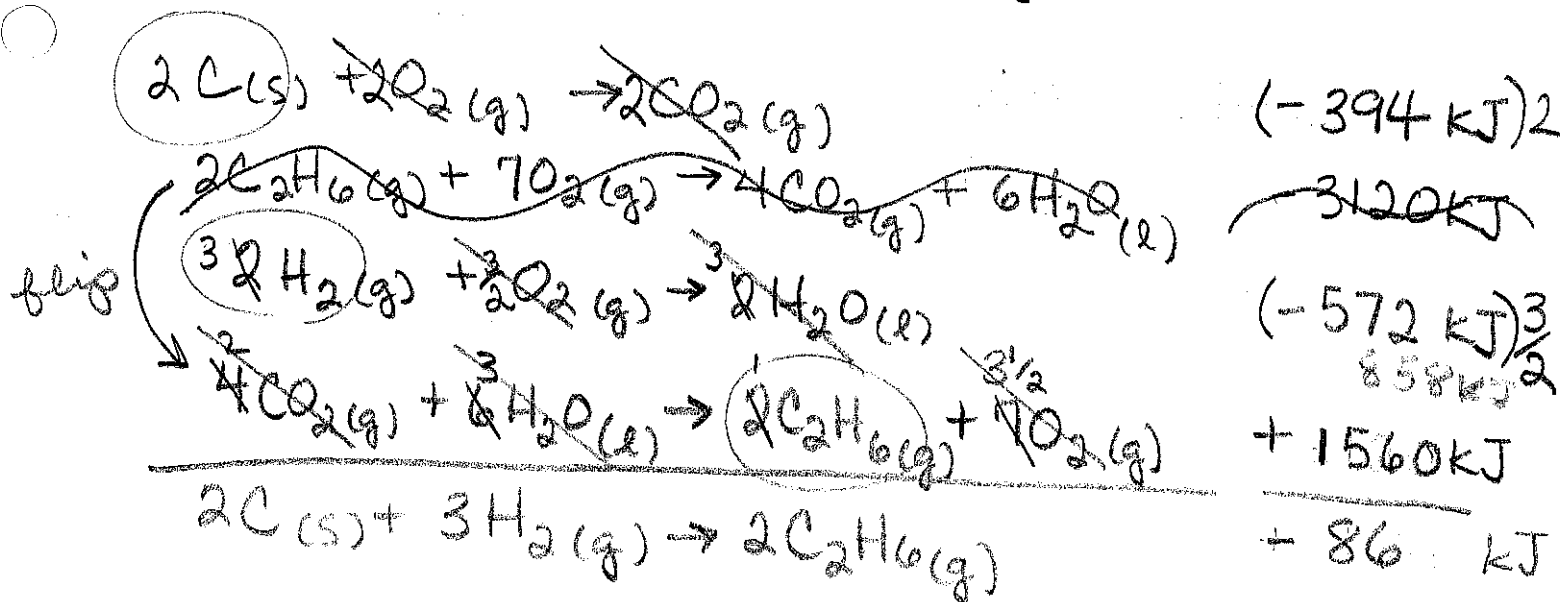 2C(s) + 2O2(g) → 2CO2(g) (-394 kJ)2
2C2H6(g) + 7O2(g) → 4CO2(g) + 6H2O(l) 3120kJ
flip 3 2H2(g) + 3/2 O2(g) → 3 2H2O(l) (-572 kJ)3/2
858kJ
2 4CO2(g) + 3 6H2O(l) → 1 2C2H6(g) + 3 1/2 7O2(g) + 1560kJ
2C(s) + 3H2(g) → 2C2H6(g) - 86 kJ